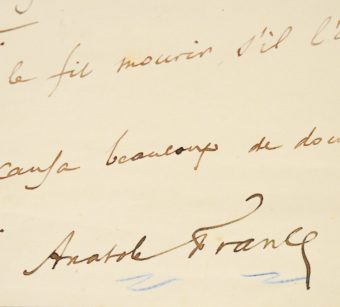 le fit mourir, s'il l'
causa beaucoup de dou
Anatole France